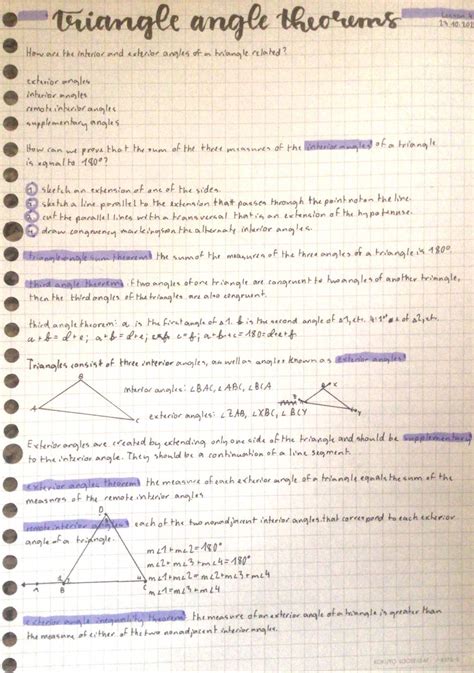 triangle angle theorems
Lesson
How are the interior and exterior angles of a triangle related?
exterior angles
interior angles
remote interior angles
supplementary angles
How can we prove that the sum of the three measures of the interior angles of a triangle
is equal to 180°?
1 sketch an extension of one of the sides.
2 sketch a line parallel to the extension that passes through the point not on the line.
3 cut the parallel lines with a transversal that is an extension of the hypotenuse.
4 draw congruency markings on the alternate interior angles.
triangle angle sum theorem: the sum of the measures of the three angles of a triangle is 180°
third angle theorem: if two angles of one triangle are congruent to two angles of another triangle,
then the third angles of the triangles are also congruent.
third angle theorem: a is the first angle of Δ1. b is the second angle of Δ1, etc. of Δ2, etc.
a + b = d + e; a + b = d + e; c = f; a + b + c = 180 = d + e + f
Triangles consist of three interior angles, as well as angles known as exterior angles
B
A
C
interior angles: ∠BAC, ∠ABC, ∠BCA
exterior angles: ∠ZAB, ∠XBC, ∠BCY
B
x
y
Exterior angles are created by extending only one side of the triangle and should be supplementary
to the interior angle. They should be a continuation of a line segment.
exterior angles theorem: the measure of each exterior angle of a triangle equals the sum of the
measures of the remote interior angles
remote interior angles: each of the two nonadjacent interior angles that correspond to each exterior
angle of a triangle.
D
A
B
C
1
2
3
4
m∠1 + m∠2 = 180°
m∠2 + m∠3 + m∠4 = 180°
m∠1 + m∠2 = m∠2 + m∠3 + m∠4
m∠1 = m∠3 + m∠4
exterior angle inequality theorem: the measure of an exterior angle of a triangle is greater than
the measure of either of the two nonadjacent interior angles.
KOKUYO LOOSELEAF